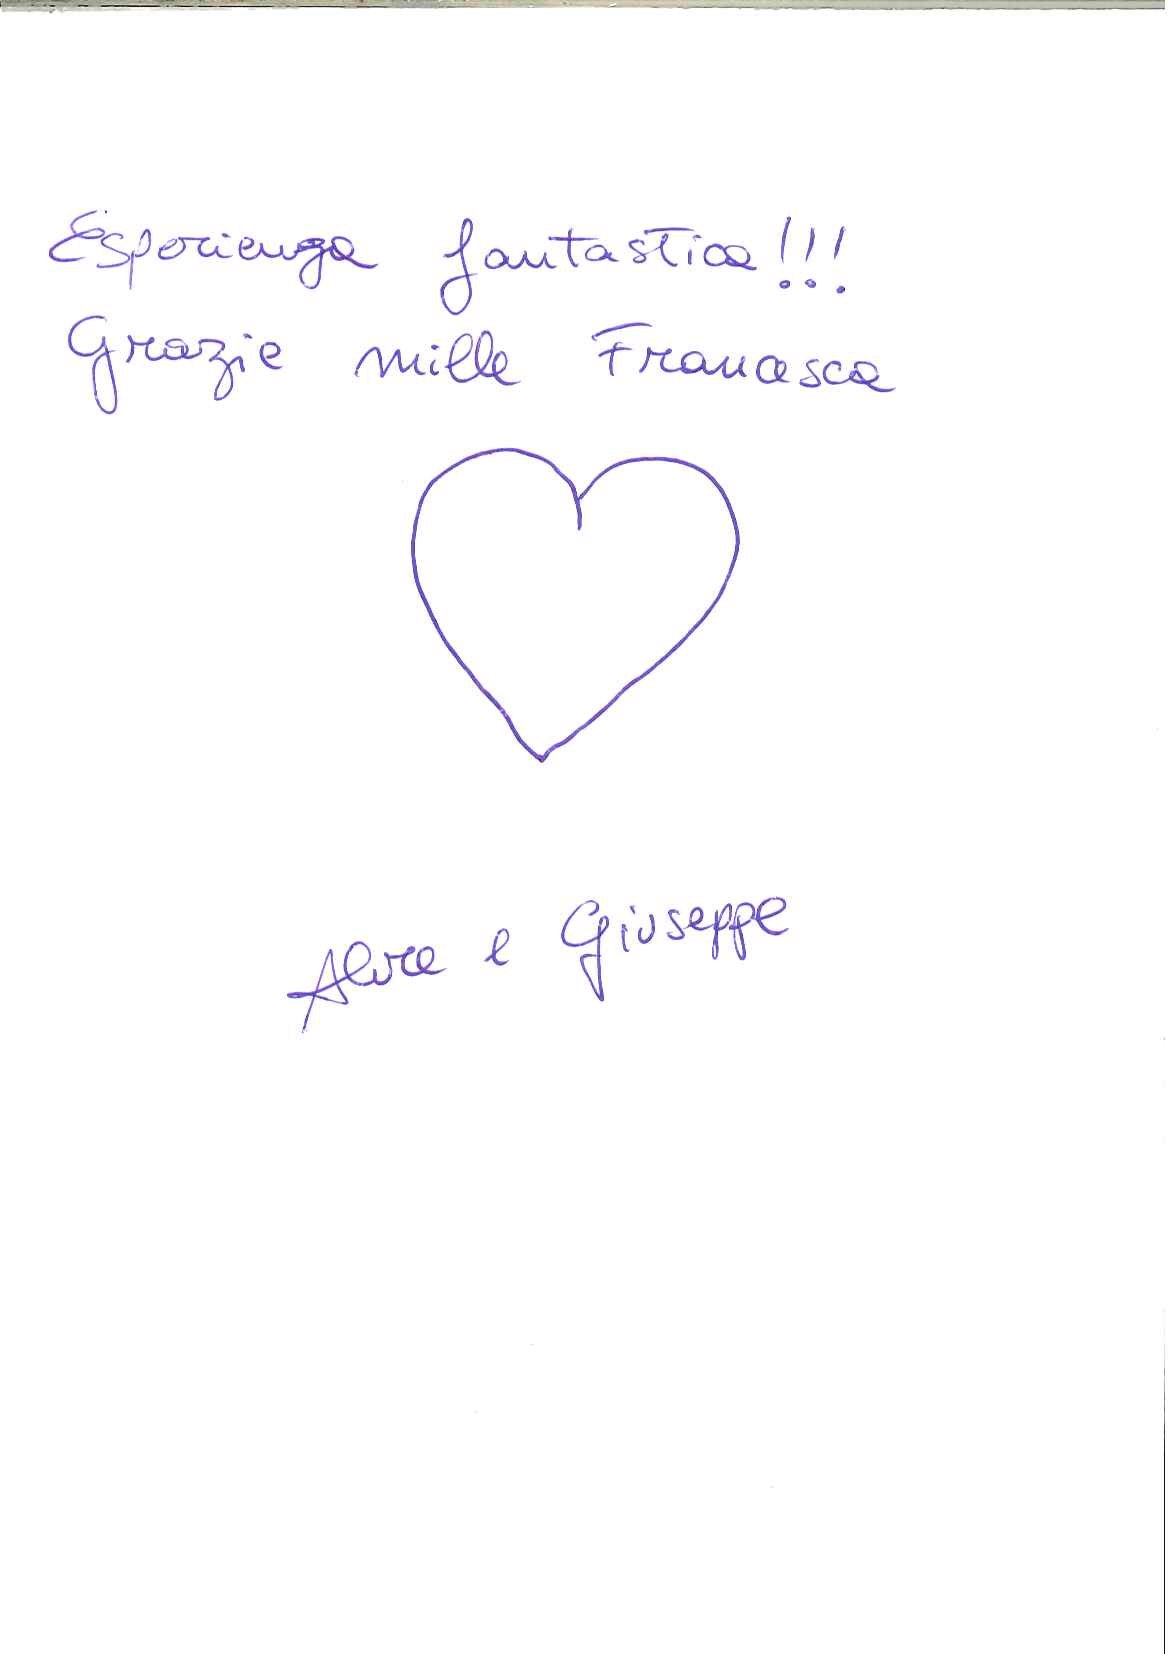 Esperienza fantastica!!!
Grazie mille Francesca
e Giuseppe